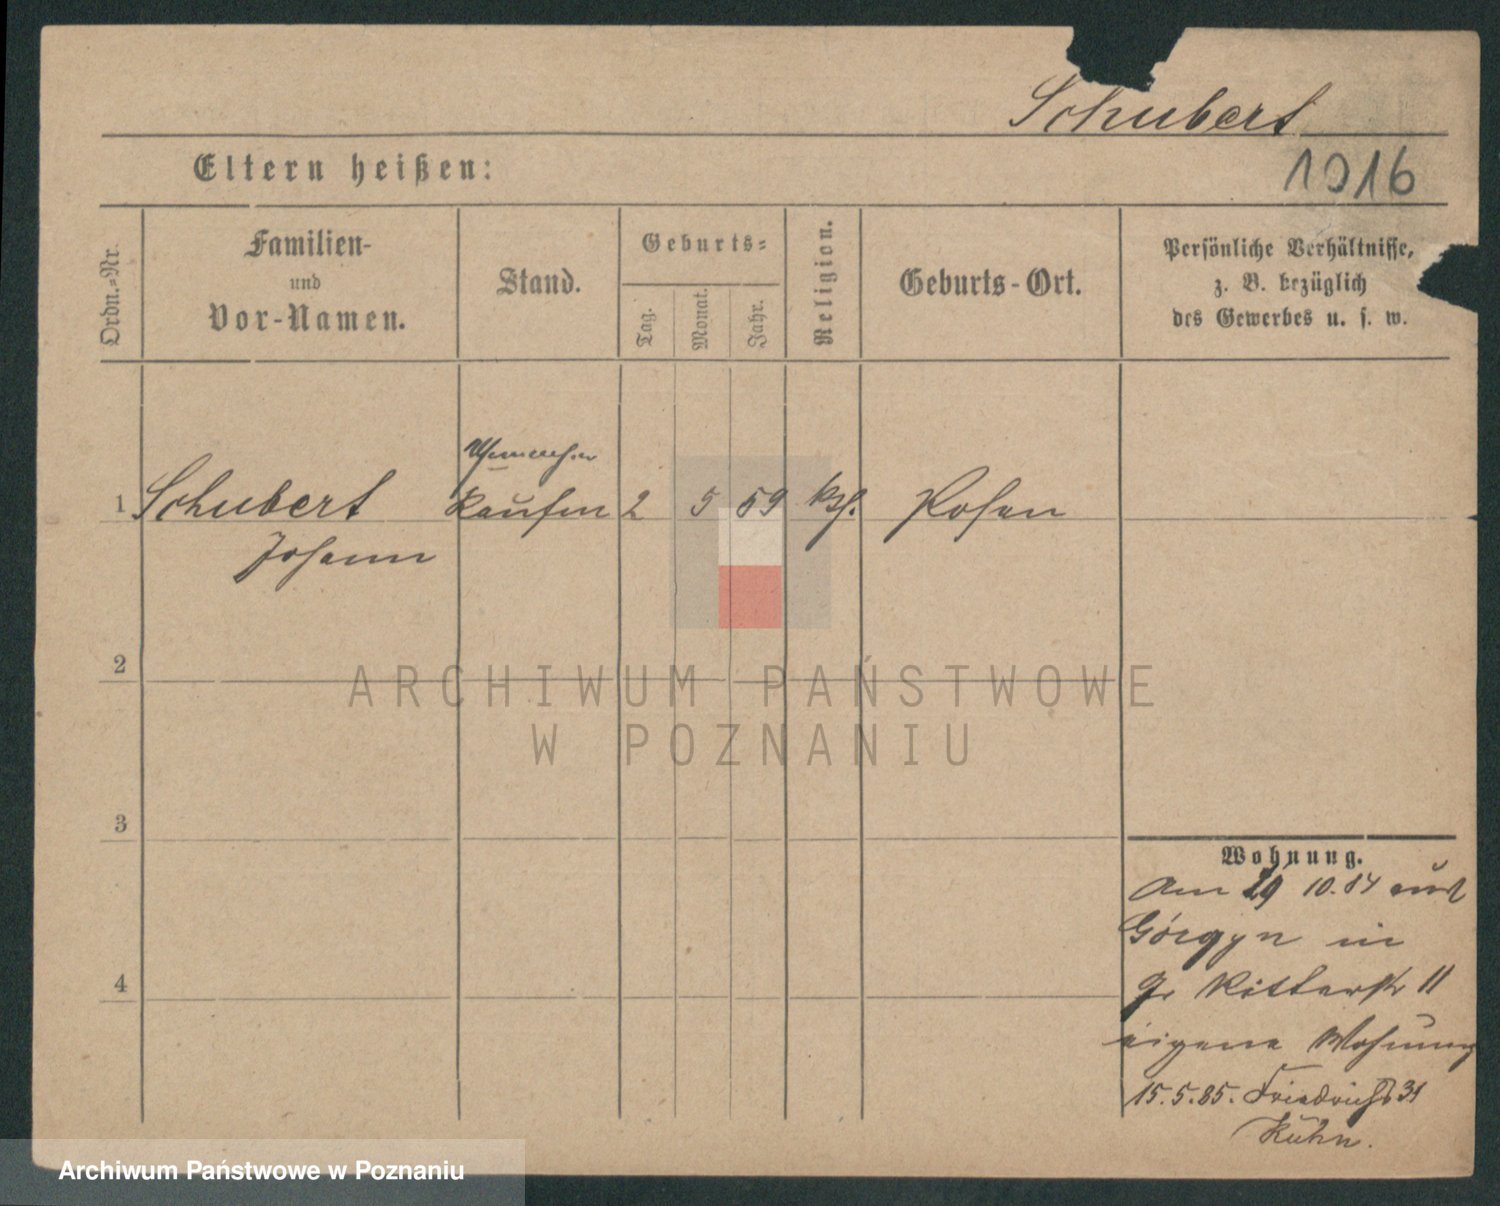 Schubert
Eltern heißen:
1916
Ordn.=Nr.
Familien-
und
Vor-Namen.
Stand.
Geburts=
Tag.
Monat.
Jahr.
Religion.
Geburts-Ort.
Persönliche Verhältnisse,
z. B. bezüglich
des Gewerbes u. s. w.
1 Schubert 2 5 59 kth. Posen
Johann
2
3
4
ARCHIWUM PAŃSTWOWE
W POZNANIU
Wohnung.
Am 29 10. 84 aus
in
gr Ritterstr 11
eigene Wohnung
15.5.85. Friedrichst 31
Kühn.
Archiwum Państwowe w Poznaniu